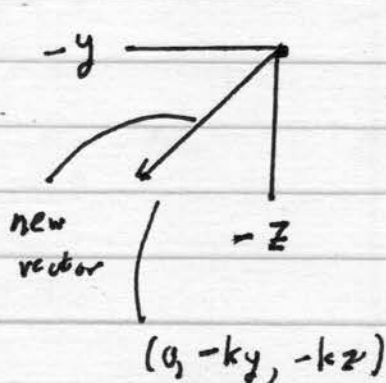 -y
new
vector
-z
(0, -ky, -kz)